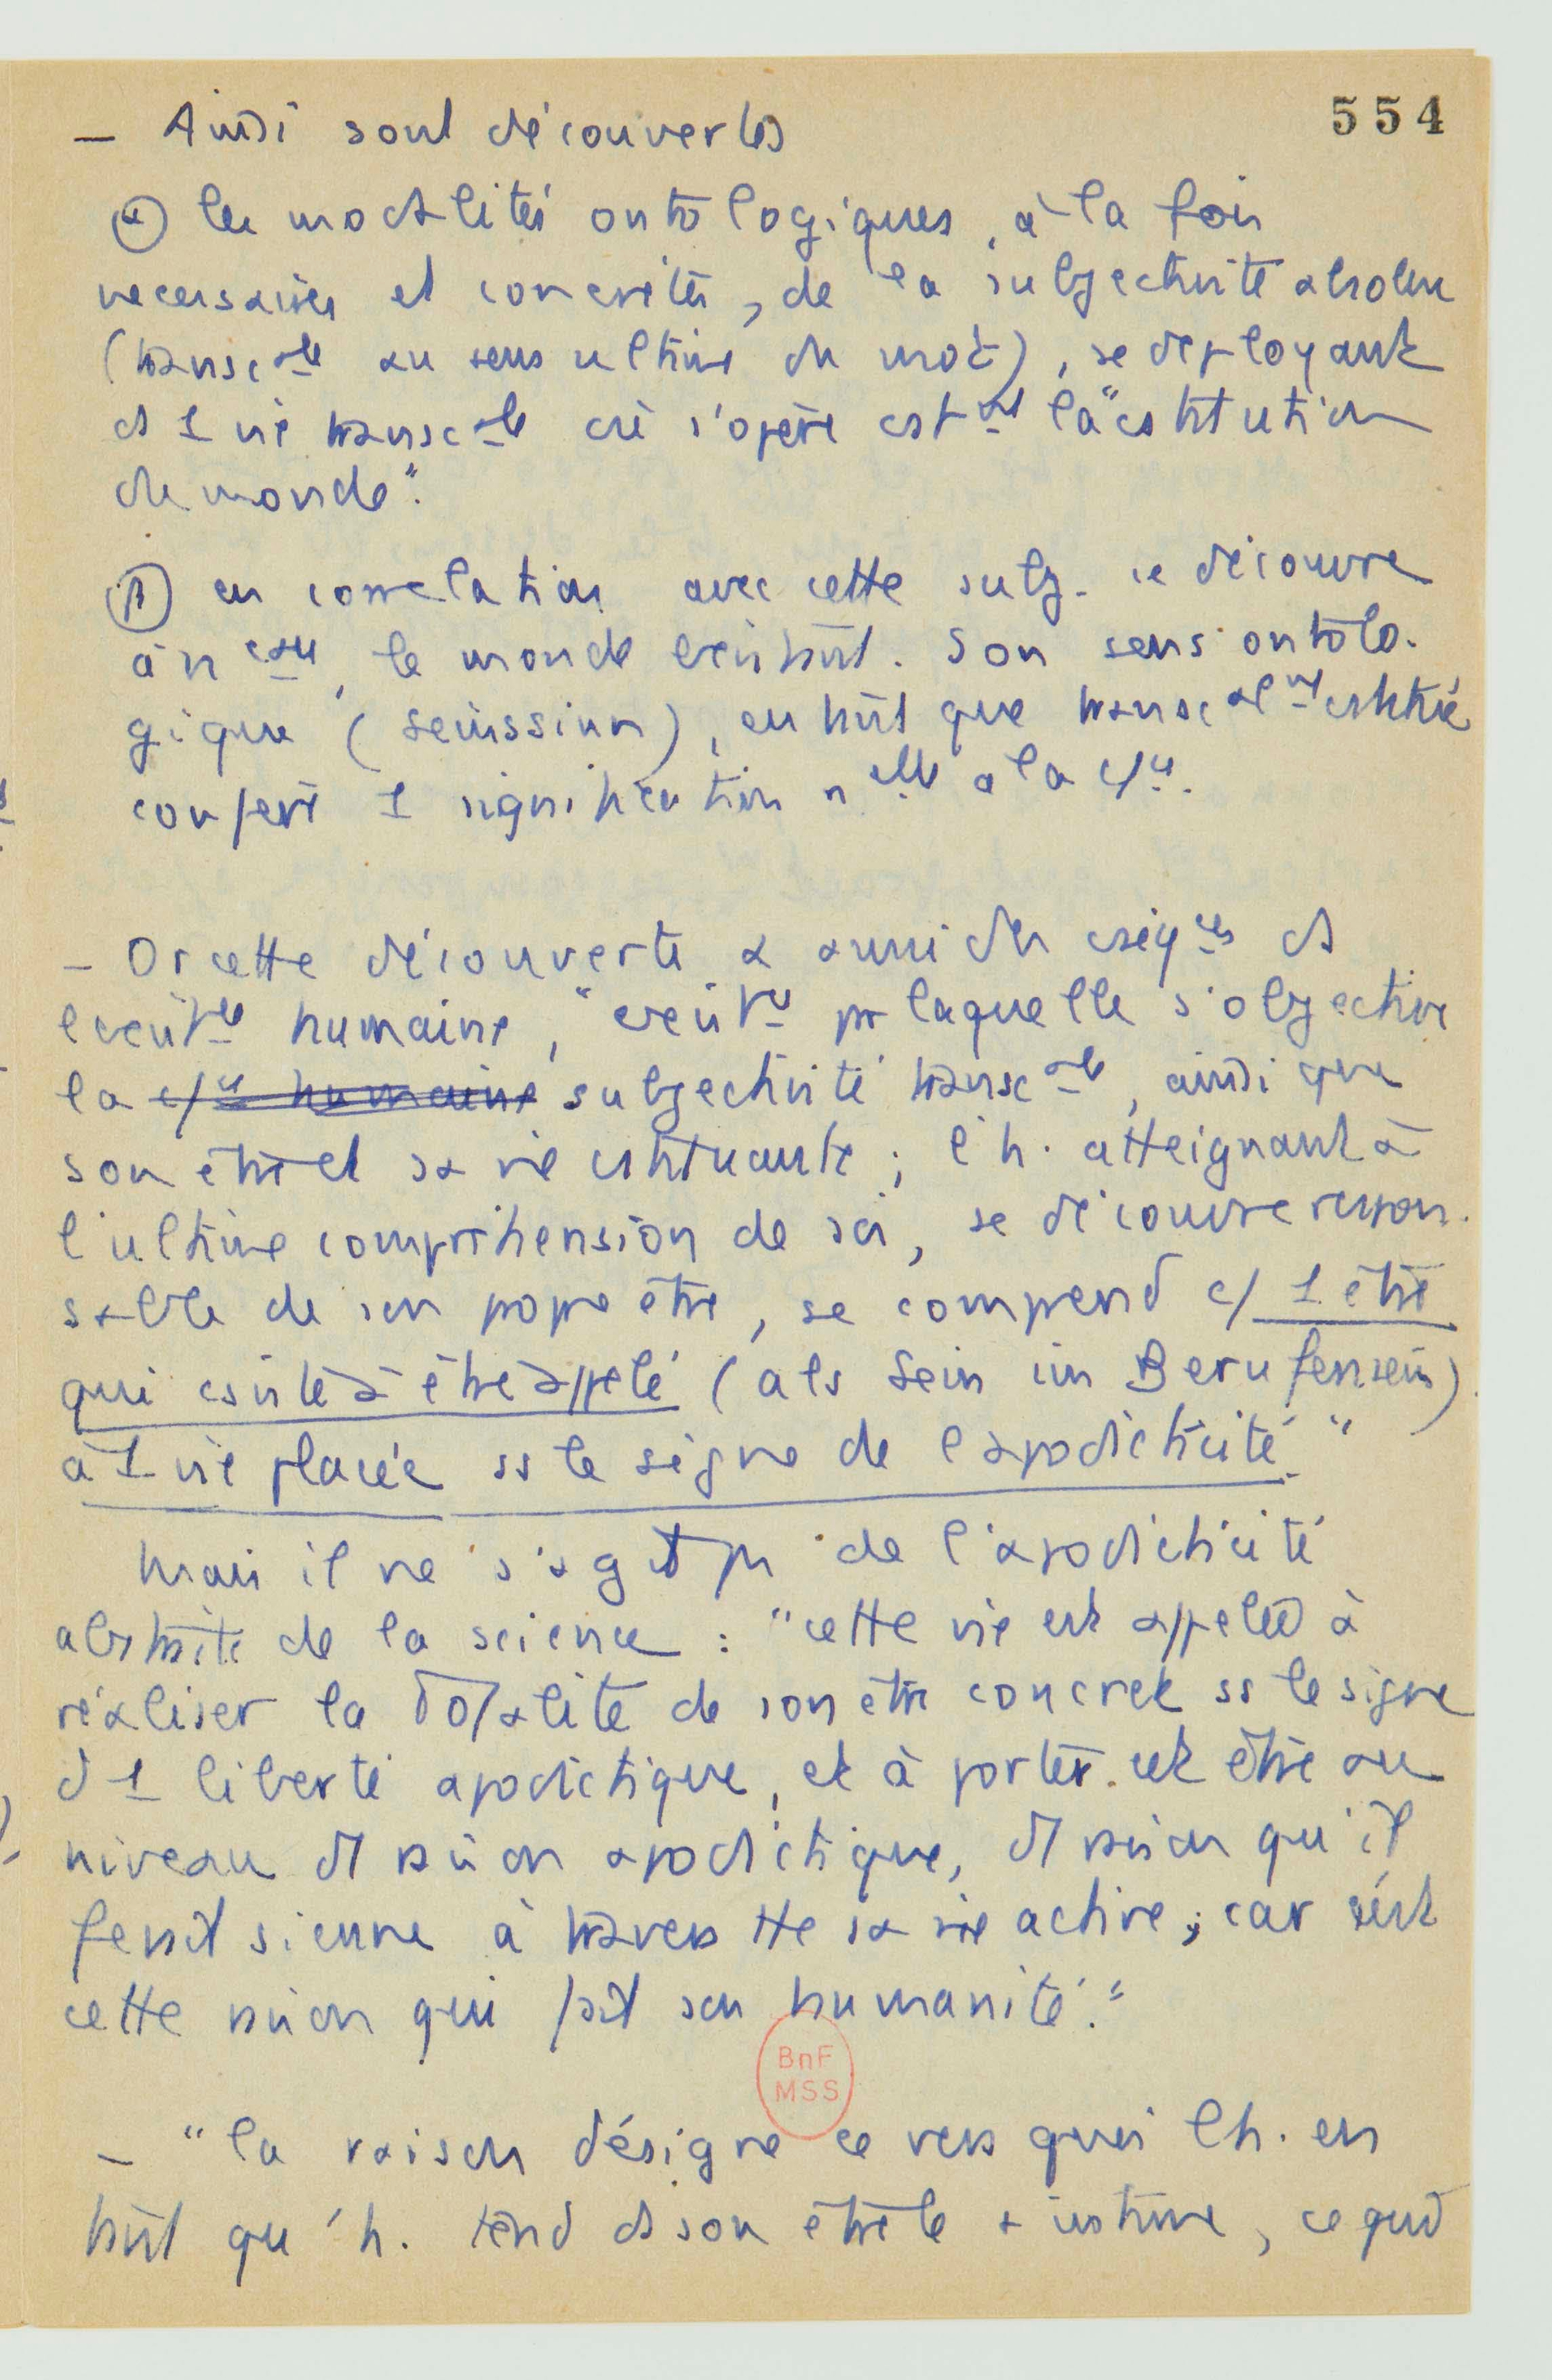 554
— Ainsi sont découvertes
α les modalités ontologiques, à la fois
necessaires et concrètes, de la subjectivité absolue
(transc ale au sens ultime du mot), se deployant
ds 1 vie transc ale où s'opère cst nt la "cstitution
du monde".
β en correlation avec cette subj. se découvre
à n eau, le monde existant. Son sens ontolo-
gique (seinssinn), en tant que transc al nt cstitué
confère 1 signification n elle à la
— Or cette découverte a aussi des cséq ces ds
l'exist ce humaine, "exist ce pr laquelle s'objective
la humaine subjectivité transc ale, ainsi que
son être et sa vie cstituante ; l'h. atteignant à
l'ultime compréhension de soi, se découvre respon-
sable de son propre être, se comprend c/ 1 être
qui csiste à être appelé (als Sein im Berufensein)
à 1 vie placée ss le signe de l'apodicticité"
Mais il ne s'agit pas de l'apodicticité
abstraite de la science : "cette vie est appelée à
réaliser la totalité de son être concret ss le signe
d 1 liberté apodictique, et à porter cet être au
niveau d1 raison apodictique, d1 raison qu'il
ferait sienne à travers tte sa vie active ; car c'est
cette raison qui fait son humanité."
— "la raison désigne ce vers quoi l'h. en
tant qu'h. tend ds son être le + intime, ce qui
BnF
MSS